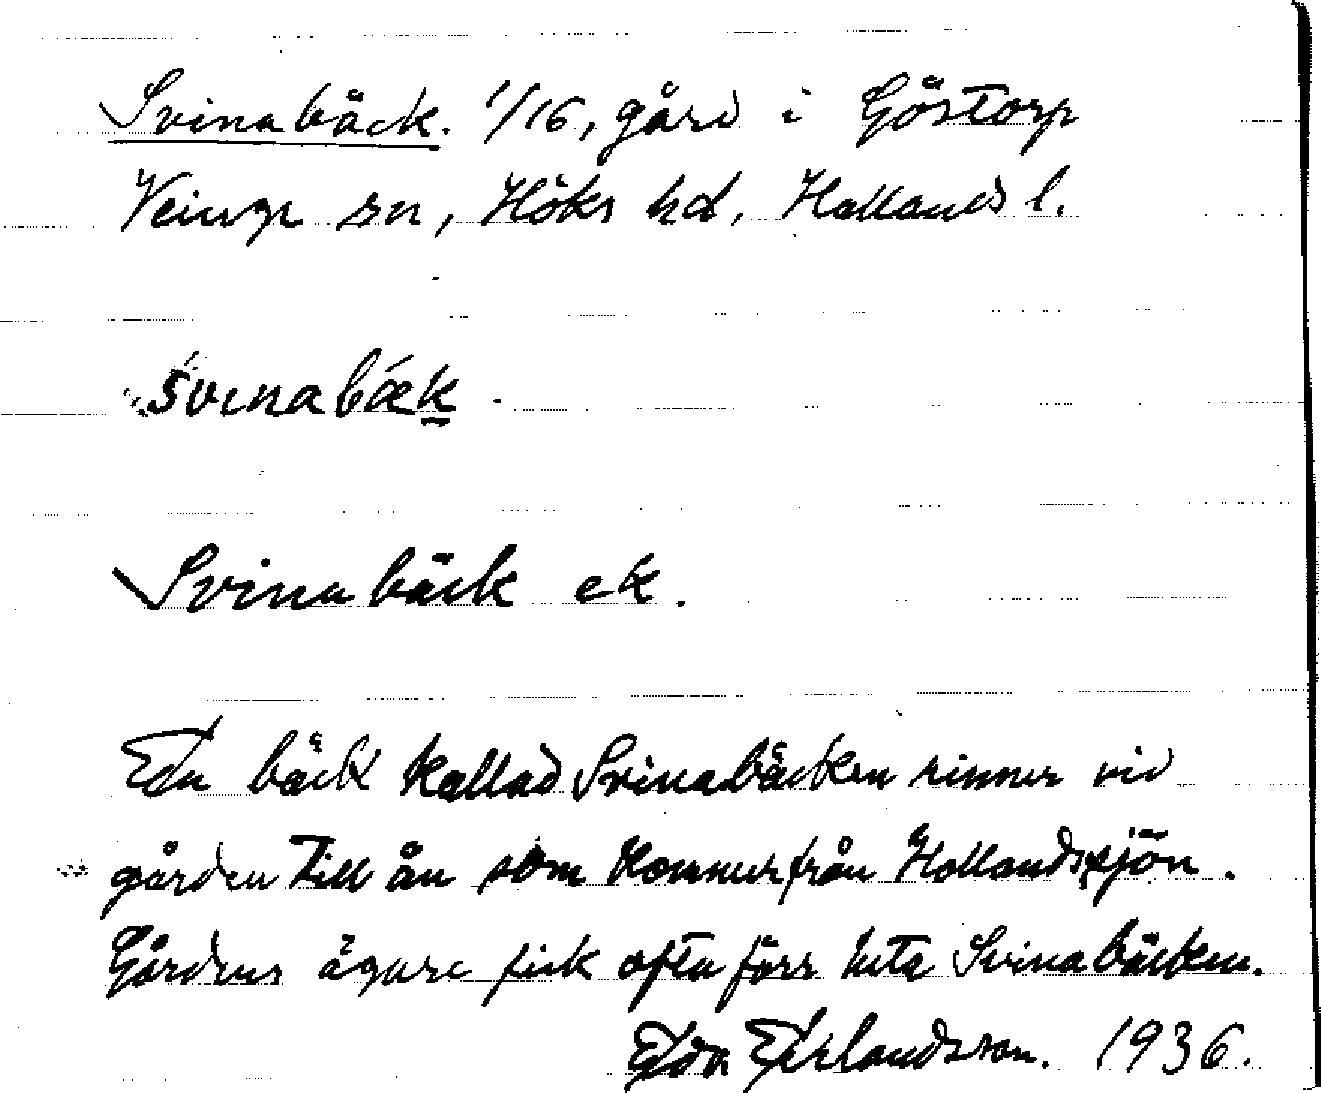 Svinabäck. 1/16, gård i Göstorp
Veinge sn, Höks hd, Hallands l.
Svinabæk
Svinabäck ek.
En bäck kallad Svinabäcken rinner vid
gården till ån som kommer från Hollandssjön.
Gårdens ägare fick ofta förr heta Svinabäcken.
Eda Erlandsson. 1936.